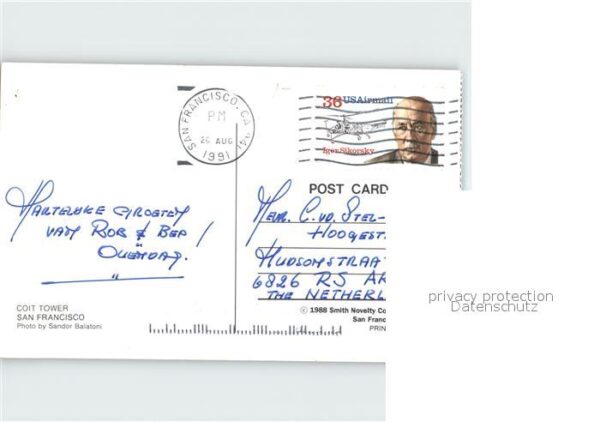 SAN FRANCISCO, CA 941
PM
26 AUG
1991
36 USAirmail
Igor Sikorsky
POST CARD
HARTELIJKE GROETEN
VAN ROB & BEP
MEVR. C. VD. STEL-
HOOGEST
HUDSONSTRAAT
6826 RS AR
THE NETHERL
COIT TOWER
SAN FRANCISCO
Photo by Sandor Balatoni
© 1988 Smith Novelty Co
San Franc
PRIN
privacy protection
Datenschutz